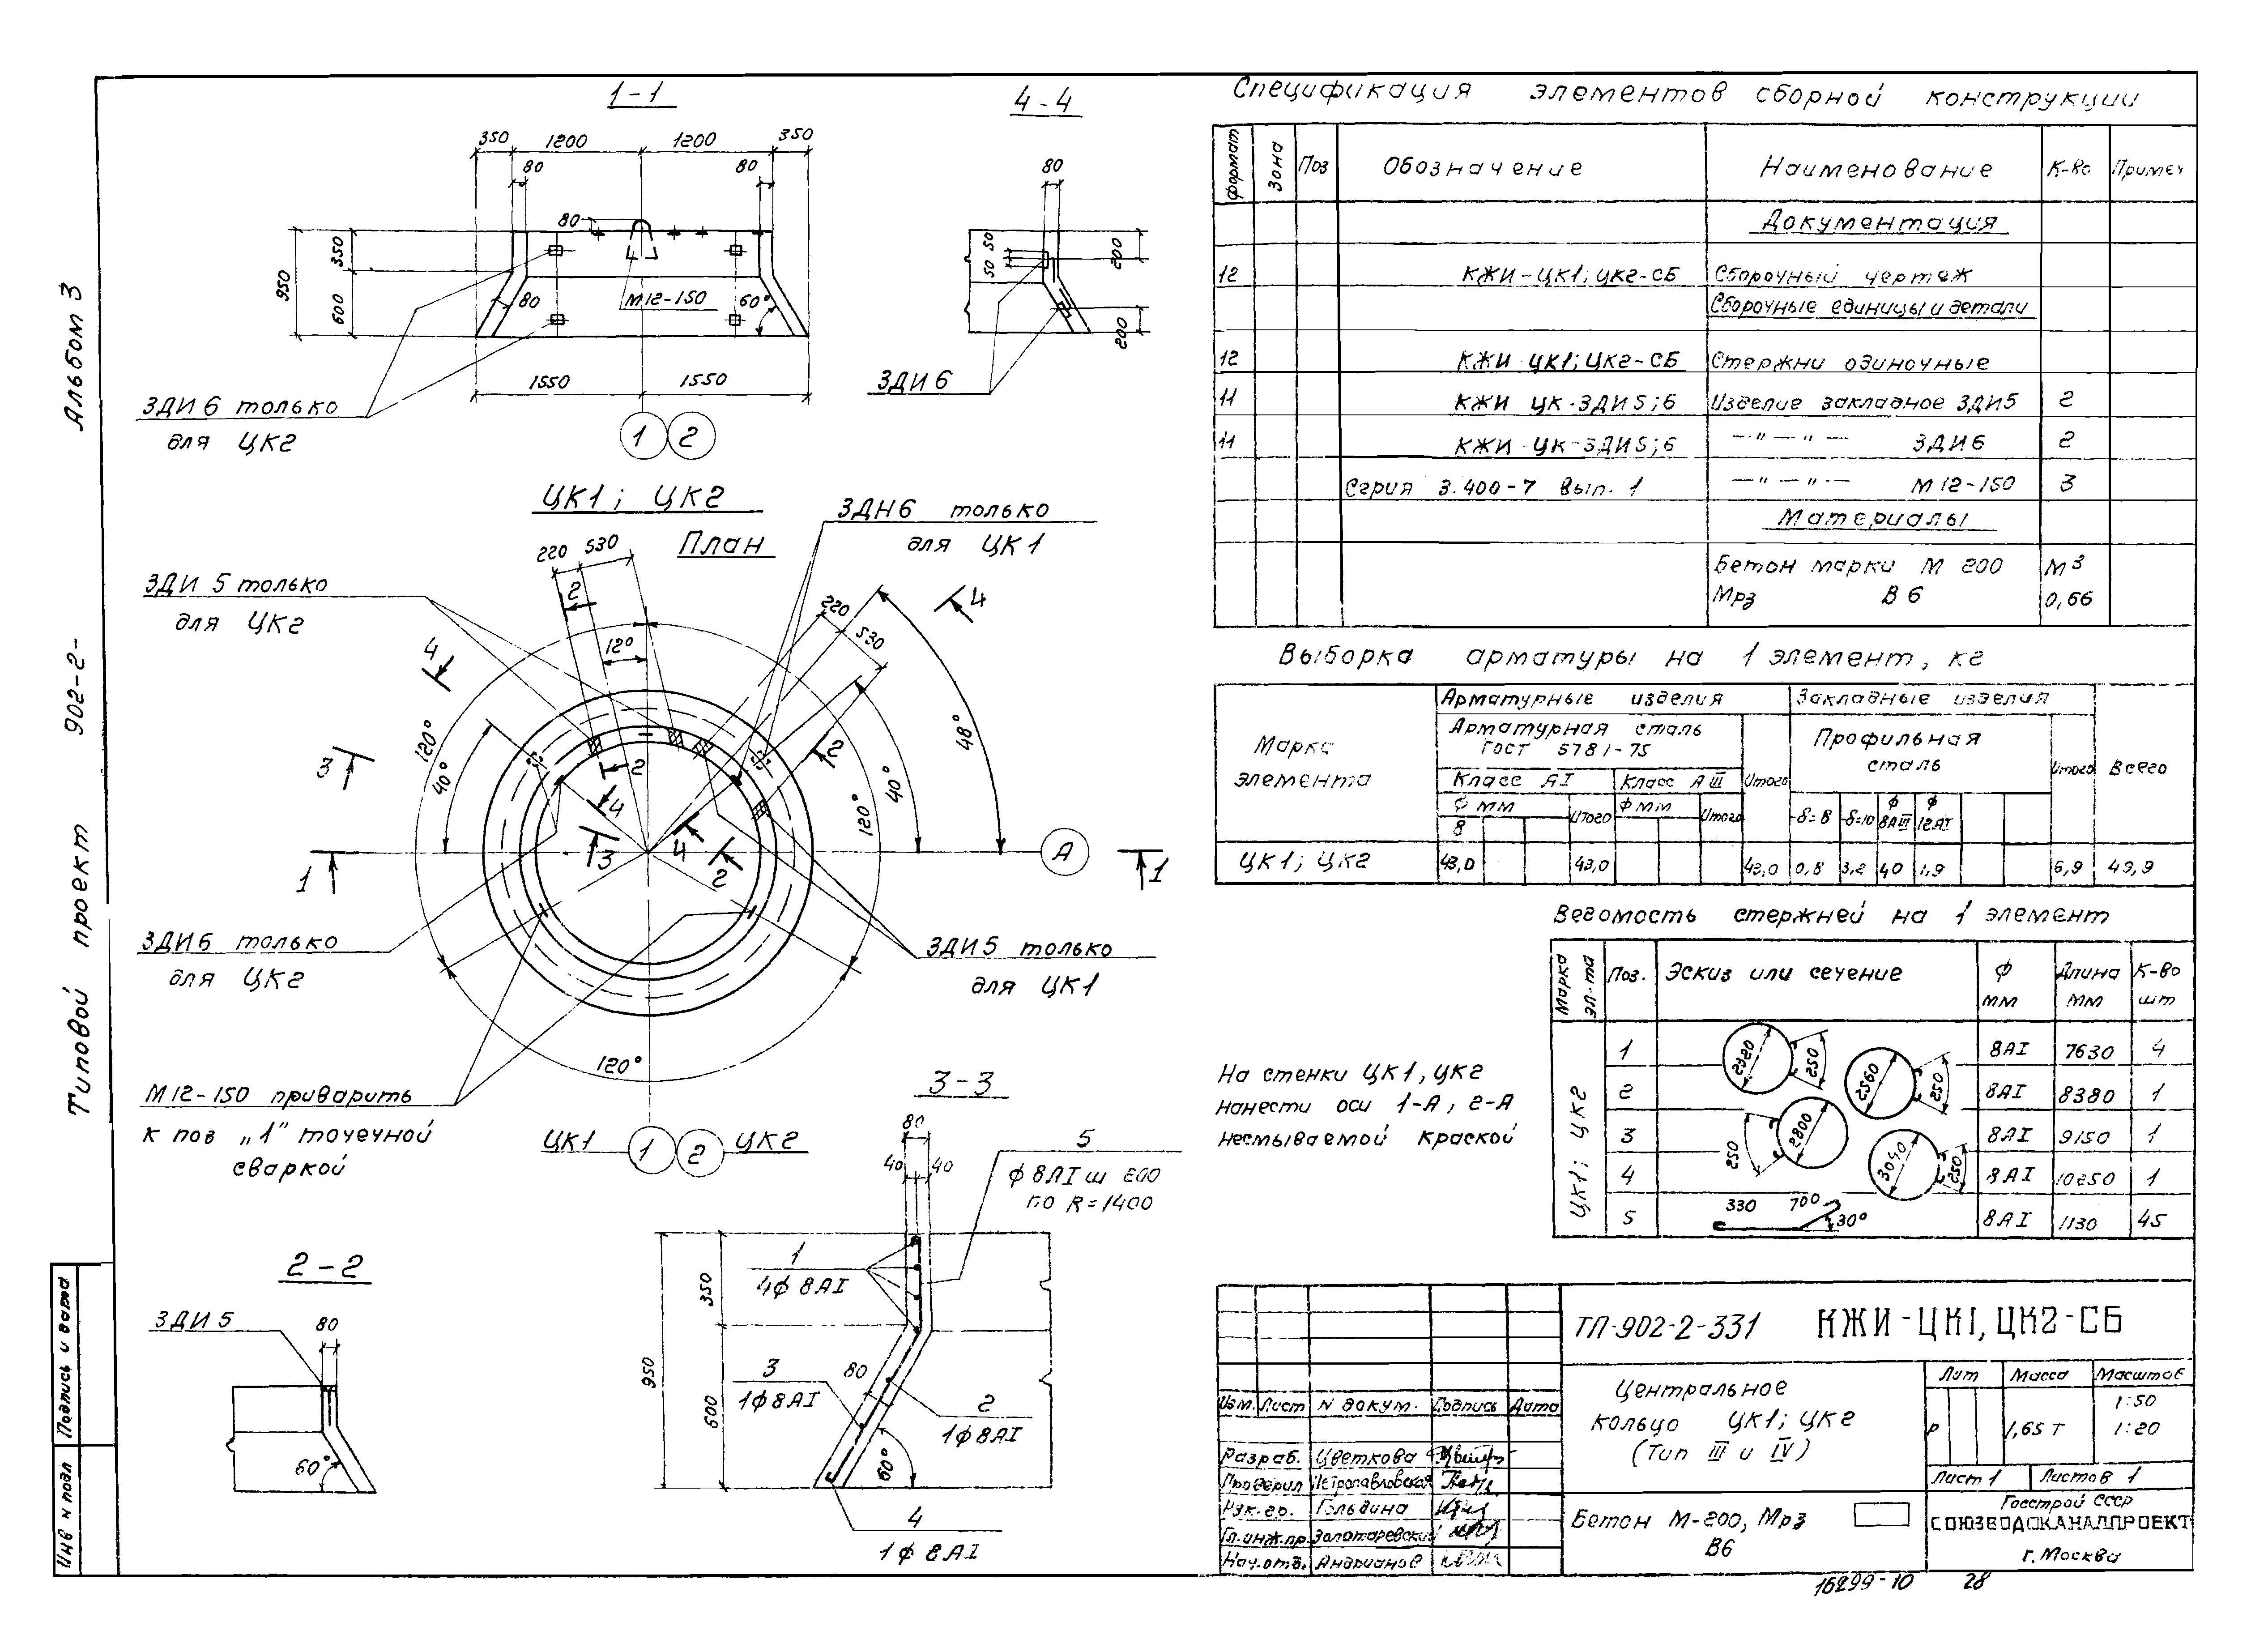 Альбом 3
Типовой проект 902-2-
Инв N подл
Подпись и дата
1-1
350 1200 1200 350
80 80
80
350
950
600
80
М12-150
60°
4
1550 1550
ЗДИ6 только
для ЦК2
1 2
4-4
80
50 50
200
200
ЗДИ6
ЦК1; ЦК2
План
ЗДН6 только
для ЦК1
220 530
ЗДИ 5 только
для ЦК2
2
4
12°
220
530
4
48°
40°
120°
40°
120°
3
2
2
4
3
4
2
1
А
1
ЗДИ6 только
для ЦК2
ЗДИ5 только
для ЦК1
120°
М12-150 приварить
к поз „1" точечной
сваркой
ЦК1 1 2 ЦК2
2-2
ЗДИ5
80
60°
3-3
80
40 40
5
ф8АI ш 200
по R=1400
1
4ф8АI
350
950
600
3
1ф8АI
80
2
1ф8АI
60°
4
1ф8АI
Спецификация элементов сборной конструкции
формат Зона Поз Обозначение Наименование К-во Примеч
Документация
12 КЖИ-ЦК1; ЦК2-СБ Сборочный чертеж
Сборочные единицы и детали
12 КЖИ ЦК1; ЦК2-СБ Стержни одиночные
11 КЖИ ЦК-ЗДИ5;6 Изделие закладное ЗДИ5 2
11 КЖИ ЦК-ЗДИ5;6 —"—"— ЗДИ6 2
Серия 3.400-7 Вып. 1 —"—"— М12-150 3
Материалы
Бетон марки М 200 м3
Мрз В6 0,66
Выборка арматуры на 1 элемент, кг
Марка элемента
Арматурные изделия Закладные изделия
Арматурная сталь
ГОСТ 5781-75
Профильная
сталь
Класс АI Класс АIII Итого Итого Всего
Ф мм Итого Фмм Итого
8
δ=8 δ=10 Ф 8АIII Ф 12АI
ЦК1; ЦК2 43,0 43,0 43,0 0,8 3,2 40 1,9 6,9 49,9
Ведомость стержней на 1 элемент
Марка эл-та Поз. Эскиз или сечение Ф мм Длина мм К-во шт
ЦК1; ЦК2
1 2320 250 8АI 7630 4
2 2560 250 8АI 8380 1
3 2800 250 8АI 9150 1
4 3040 250 8АI 10250 1
5 330 700 30° 8АI 1130 45
На стенки ЦК1, ЦК2
нанести оси 1-А, 2-А
несмываемой краской
ТП-902-2-331 КЖИ-ЦК1, ЦК2-СБ
Изм. Лист N докум. Подпись Дата
Разраб. Цветкова
Проверил Петропавловская
Рук.гр. Гольдина
Гл.инж.пр. Золотаревский
Нач.отд. Андрианов
Центральное
кольцо ЦК1; ЦК2
(Тип III и IV)
Лит Масса Масштаб
Р 1,65 т 1:50
1:20
Лист 1 Листов 1
Бетон М-200, Мрз
В6
Госстрой СССР
СОЮЗВОДОКАНАЛПРОЕКТ
г. Москва
16299-10 28